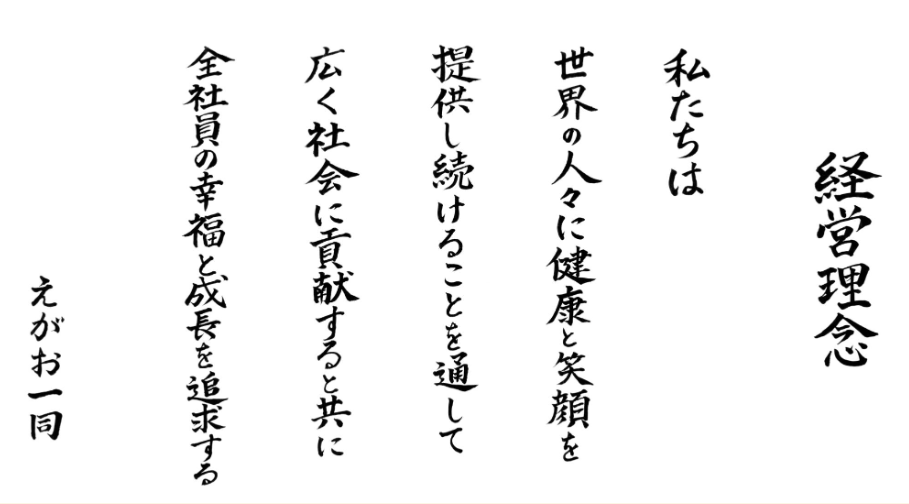 経営理念
私たちは
世界の人々に健康と笑顔を
提供し続けることを通して
広く社会に貢献すると共に
全社員の幸福と成長を追求する
えがお一同